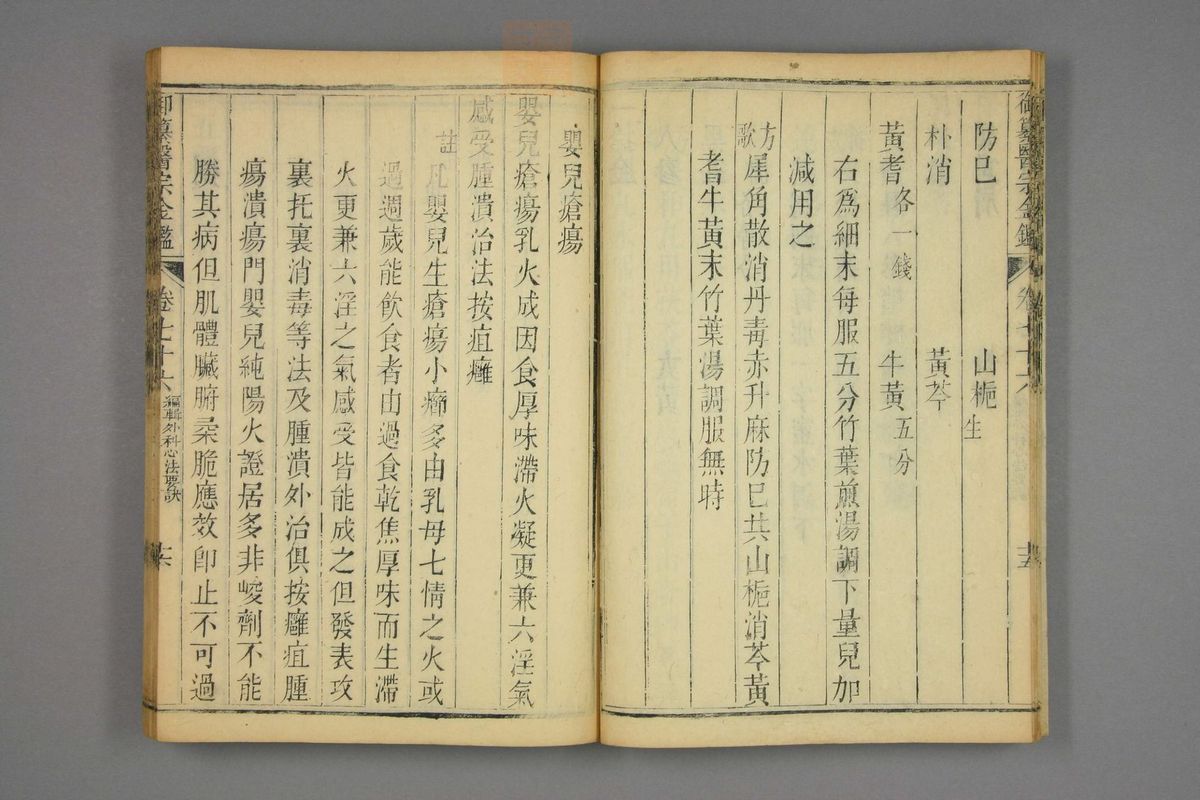 防巳 山梔生
朴消 黃芩
黃耆各一錢 牛黃五分
右爲細末每服五分竹葉煎湯調下量兒加
減用之
方歌 犀角散消丹毒赤升麻防巳共山梔消芩黃
耆牛黃末竹葉湯調服無時
嬰兒瘡瘍
嬰兒瘡瘍乳火成因食厚味滯火凝更兼六淫氣
感受腫潰治法按疽癰
註 凡嬰兒生瘡瘍小癤多由乳母七情之火或
過週歲能飲食者由過食乾焦厚味而生滯
火更兼六淫之氣感受皆能成之但發表攻
裏托裏消毒等法及腫潰外治俱按癰疽腫
瘍潰瘍門嬰兒純陽火證居多非峻劑不能
勝其病但肌體臟腑柔脆應效卽止不可過
御纂醫宗金鑑 卷七十六 編輯外科心法要訣